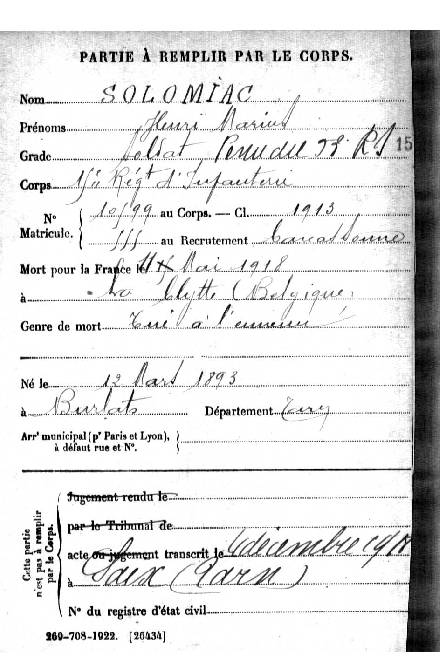 PARTIE À REMPLIR PAR LE CORPS.
Nom SOLOMIAC
Prénoms Henri Marius
Grade Soldat
15
Corps 15e Régt d'Infanterie
N° Matricule. { 10599 au Corps. — Cl. 1913
555 au Recrutement Carcassonne
Mort pour la France le 11 Mai 1918
à La Clytte (Belgique)
Genre de mort Tué à l'ennemi
Né le 12 Mars 1893
à Burlats Département Tarn
Arrt municipal (pr Paris et Lyon), à défaut rue et N°. }
Cette partie n'est pas à remplir par le Corps. {
Jugement rendu le
par le Tribunal de
acte ou jugement transcrit le 4 décembre 1918
à Saix (Tarn)
N° du registre d'état civil
269-708-1922. [26434]